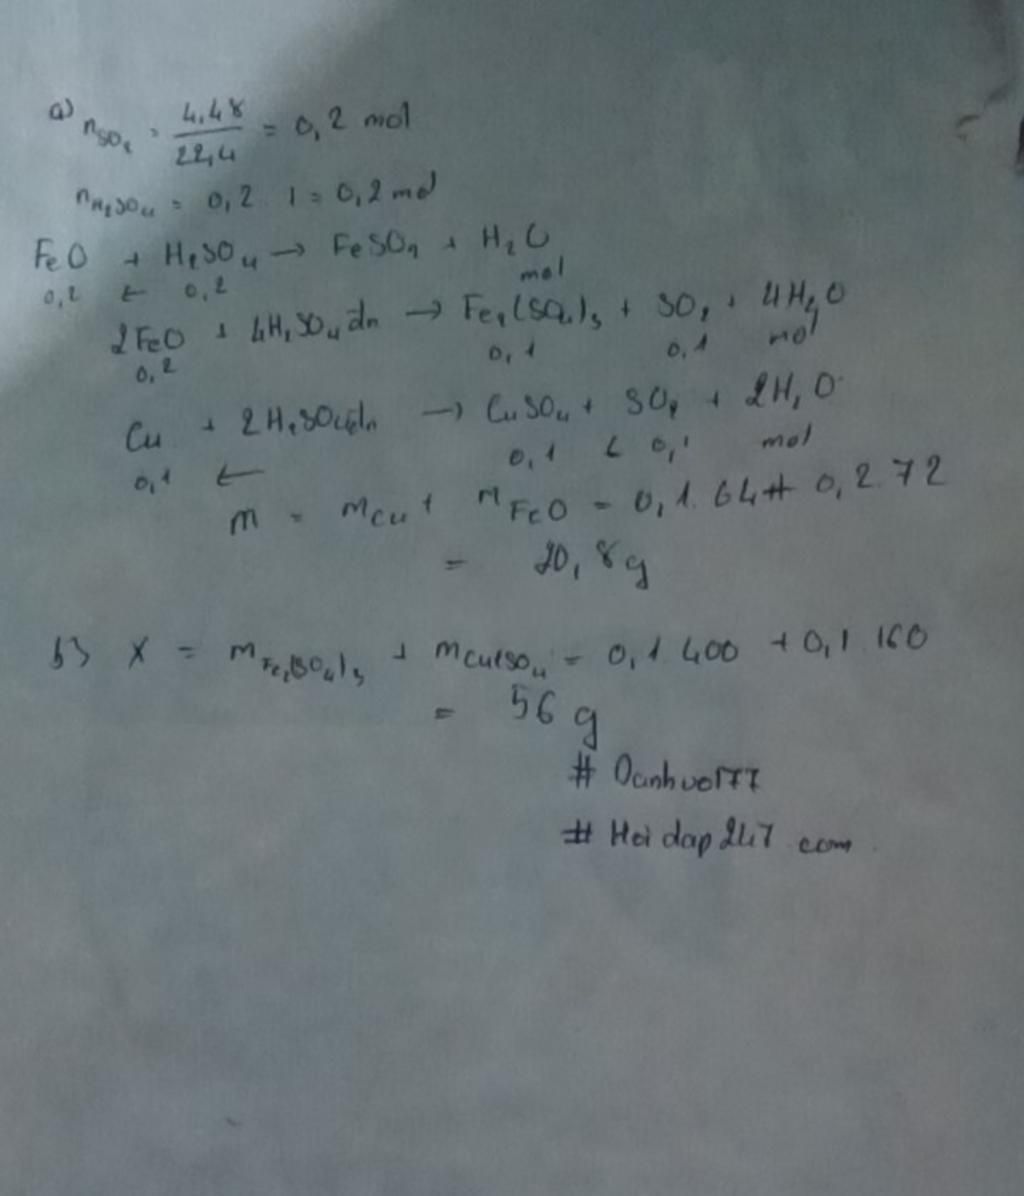 a) nSO2 = 4,48 / 22,4 = 0,2 mol
nH2SO4 = 0,2 . 1 = 0,2 mol
FeO + H2SO4 → FeSO4 + H2O
0,2 ← 0,2 mol
2FeO + 4H2SO4 đn → Fe2(SO4)3 + SO2 + 4H2O
0,2 0,1 0,1 mol
Cu + 2H2SO4 đn → CuSO4 + SO2 + 2H2O
0,1 ← 0,1 < 0,1 mol
m = mCu + mFeO = 0,1 . 64 + 0,2 . 72
= 20,8g
b) X = mFe2(SO4)3 + mCuSO4 = 0,1 . 400 + 0,1 . 160
= 56 g
# Danhvo177
# Hoidap247 com